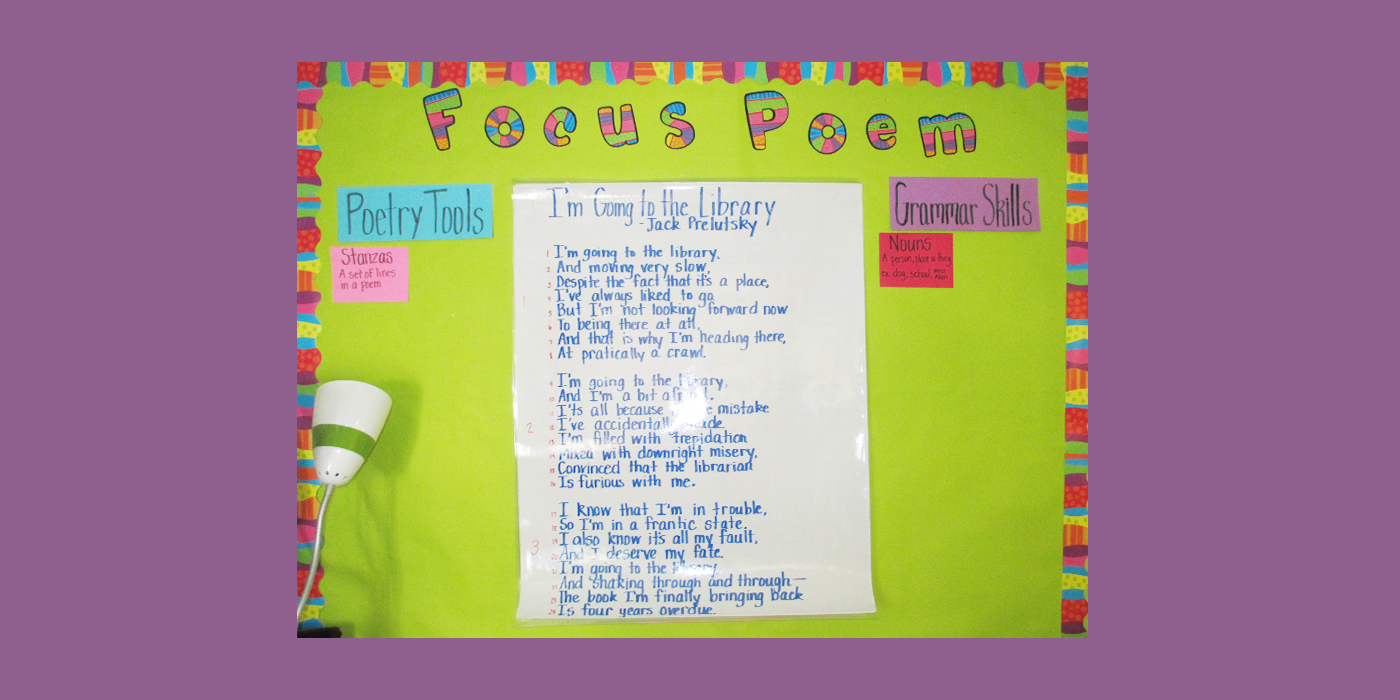 Focus Poem
Poetry Tools
Stanzas
A set of lines
in a poem
I'm Going to the Library
-Jack Prelutsky
1 I'm going to the library,
2 And moving very slow,
3 Despite the fact that it's a place,
1
4 I've always liked to go
5 But I'm not looking forward now
6 To being there at all,
7 And that is why I'm heading there,
8 At pratically a crawl.
9 I'm going to the library,
10 And I'm a bit afraid.
11 I'ts all because mistake
2
12 I've accidentally made
13 I'm filled with trepidation
14 Mixed with downright misery,
15 Convinced that the librarian
16 Is furious with me.
17 I know that I'm in trouble,
18 So I'm in a frantic state.
19 I also know it's all my fault,
3
20 And I deserve my fate.
21 I'm going to the library,
22 And shaking through and through—
23 The book I'm finally bringing back
24 Is four years overdue.
Grammar Skills
Nouns
A person, place or thing
ex. dog, school,